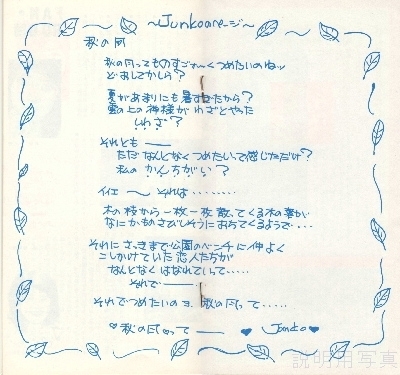 ～Junkoのページ～
秋の風
秋の風ってものすごーくつめたいのねッ
どおしてかしら?
夏があまりにも暑すぎたから?
雲の上の神様が わざとやった
しわざ?
それとも ──
ただ なんとなくつめたいって感じただけ?
私の かんちがい?
イイエ ～ それは ‥‥‥‥
木の枝から一枚一枚散ってくる木の葉が
なにかものさびしそうにおちてくるようで‥‥
それにさっきまで公園のベンチに仲よく
こしかけていた恋人たちが
なんとなくはなれていって‥‥‥
それで ──
それでつめたいのヨ、秋の風って‥‥‥
♥秋の風って ── ♥ Junko♥
説明用写真